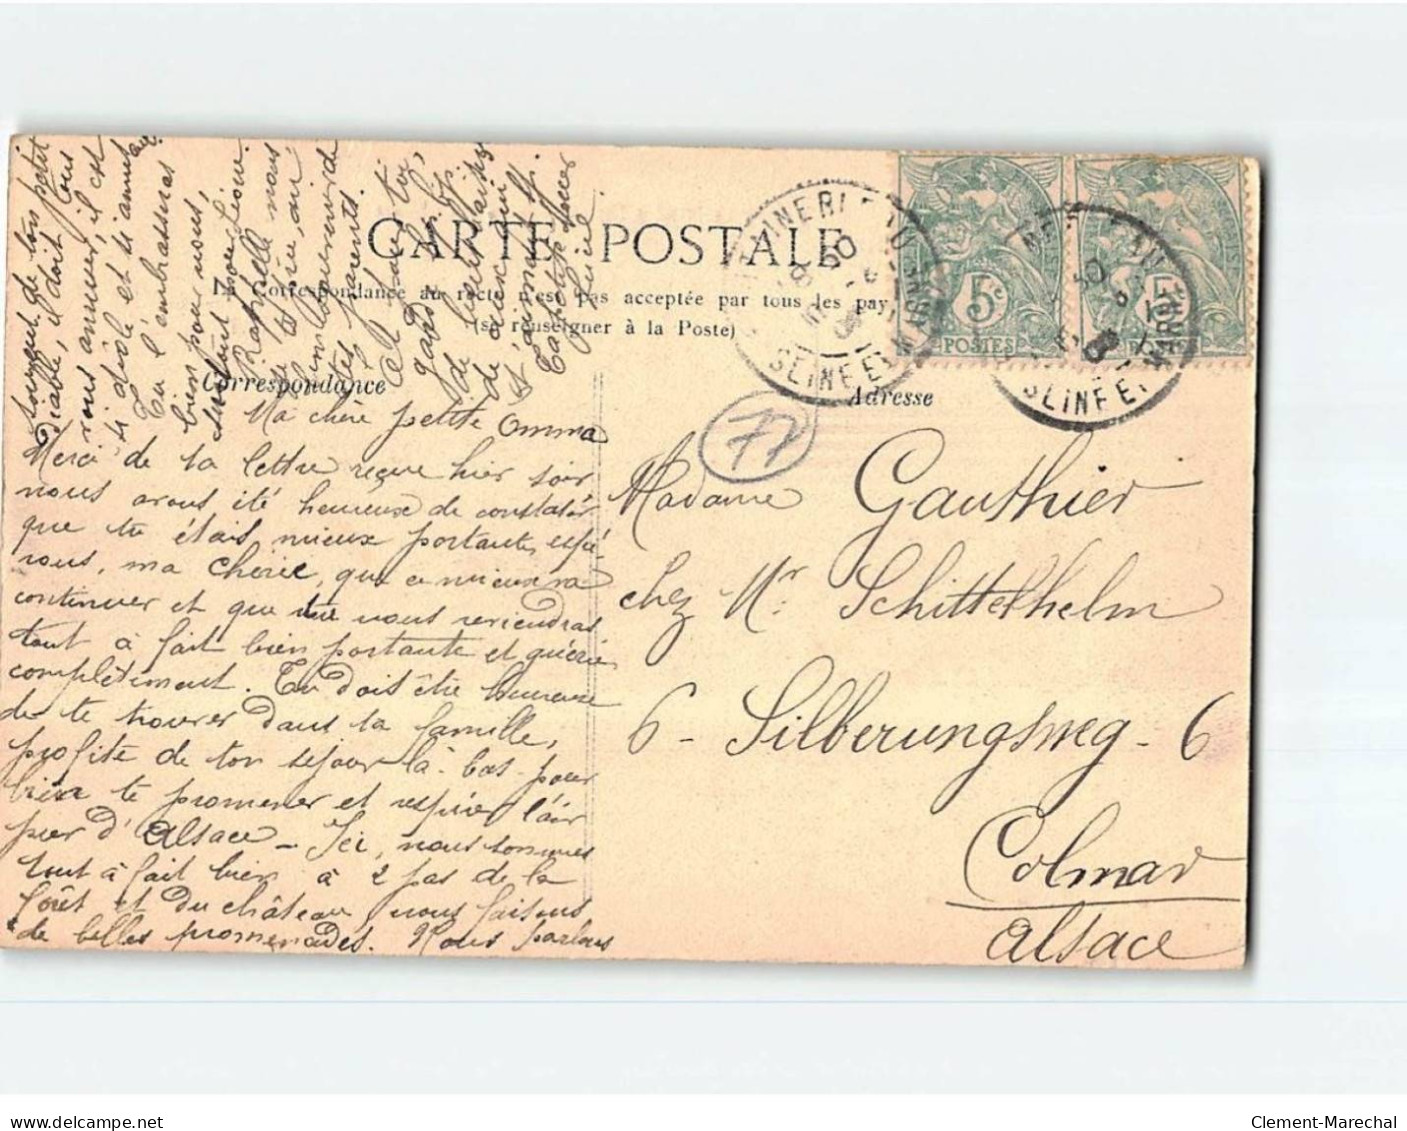 CARTE POSTALE
La Correspondance au recto n'est pas acceptée par tous les pays
(se renseigner à la Poste)
Correspondance
Adresse
Ma chère petite Omma
Merci de ta lettre reçue hier soir
nous avons été heureux de constater
que tu étais mieux portante, espé-
rons, ma chérie, que ce mieux va
continuer et que tu nous reviendras
tout à fait bien portante et guérie
complètement. Tu dois être heureuse
de te trouver dans ta famille,
profite de ton séjour là-bas pour
bien te promener et respirer l'air
pur d'Alsace - Ici, nous sommes
tout à fait bien à 2 pas de la
forêt et du château, nous faisons
de belles promenades. Nous parlons
souvent de ton petit
Diable, il doit vous
nous amuser, il est
si drôle et si amusant
Tu l'embrasseras
bien pour nous,
surtout
Rappelle nous
bon souvenir de
tes parents.
et à toi,
de
de
Madame Gauthier
chez Mr. Schittelhelm
6 - Silberungsweg - 6
Colmar
Alsace
77
5c
POSTES
SEINE ET MARNE
SEINE ET MARNE
Clement-Marechal
delcampe.net